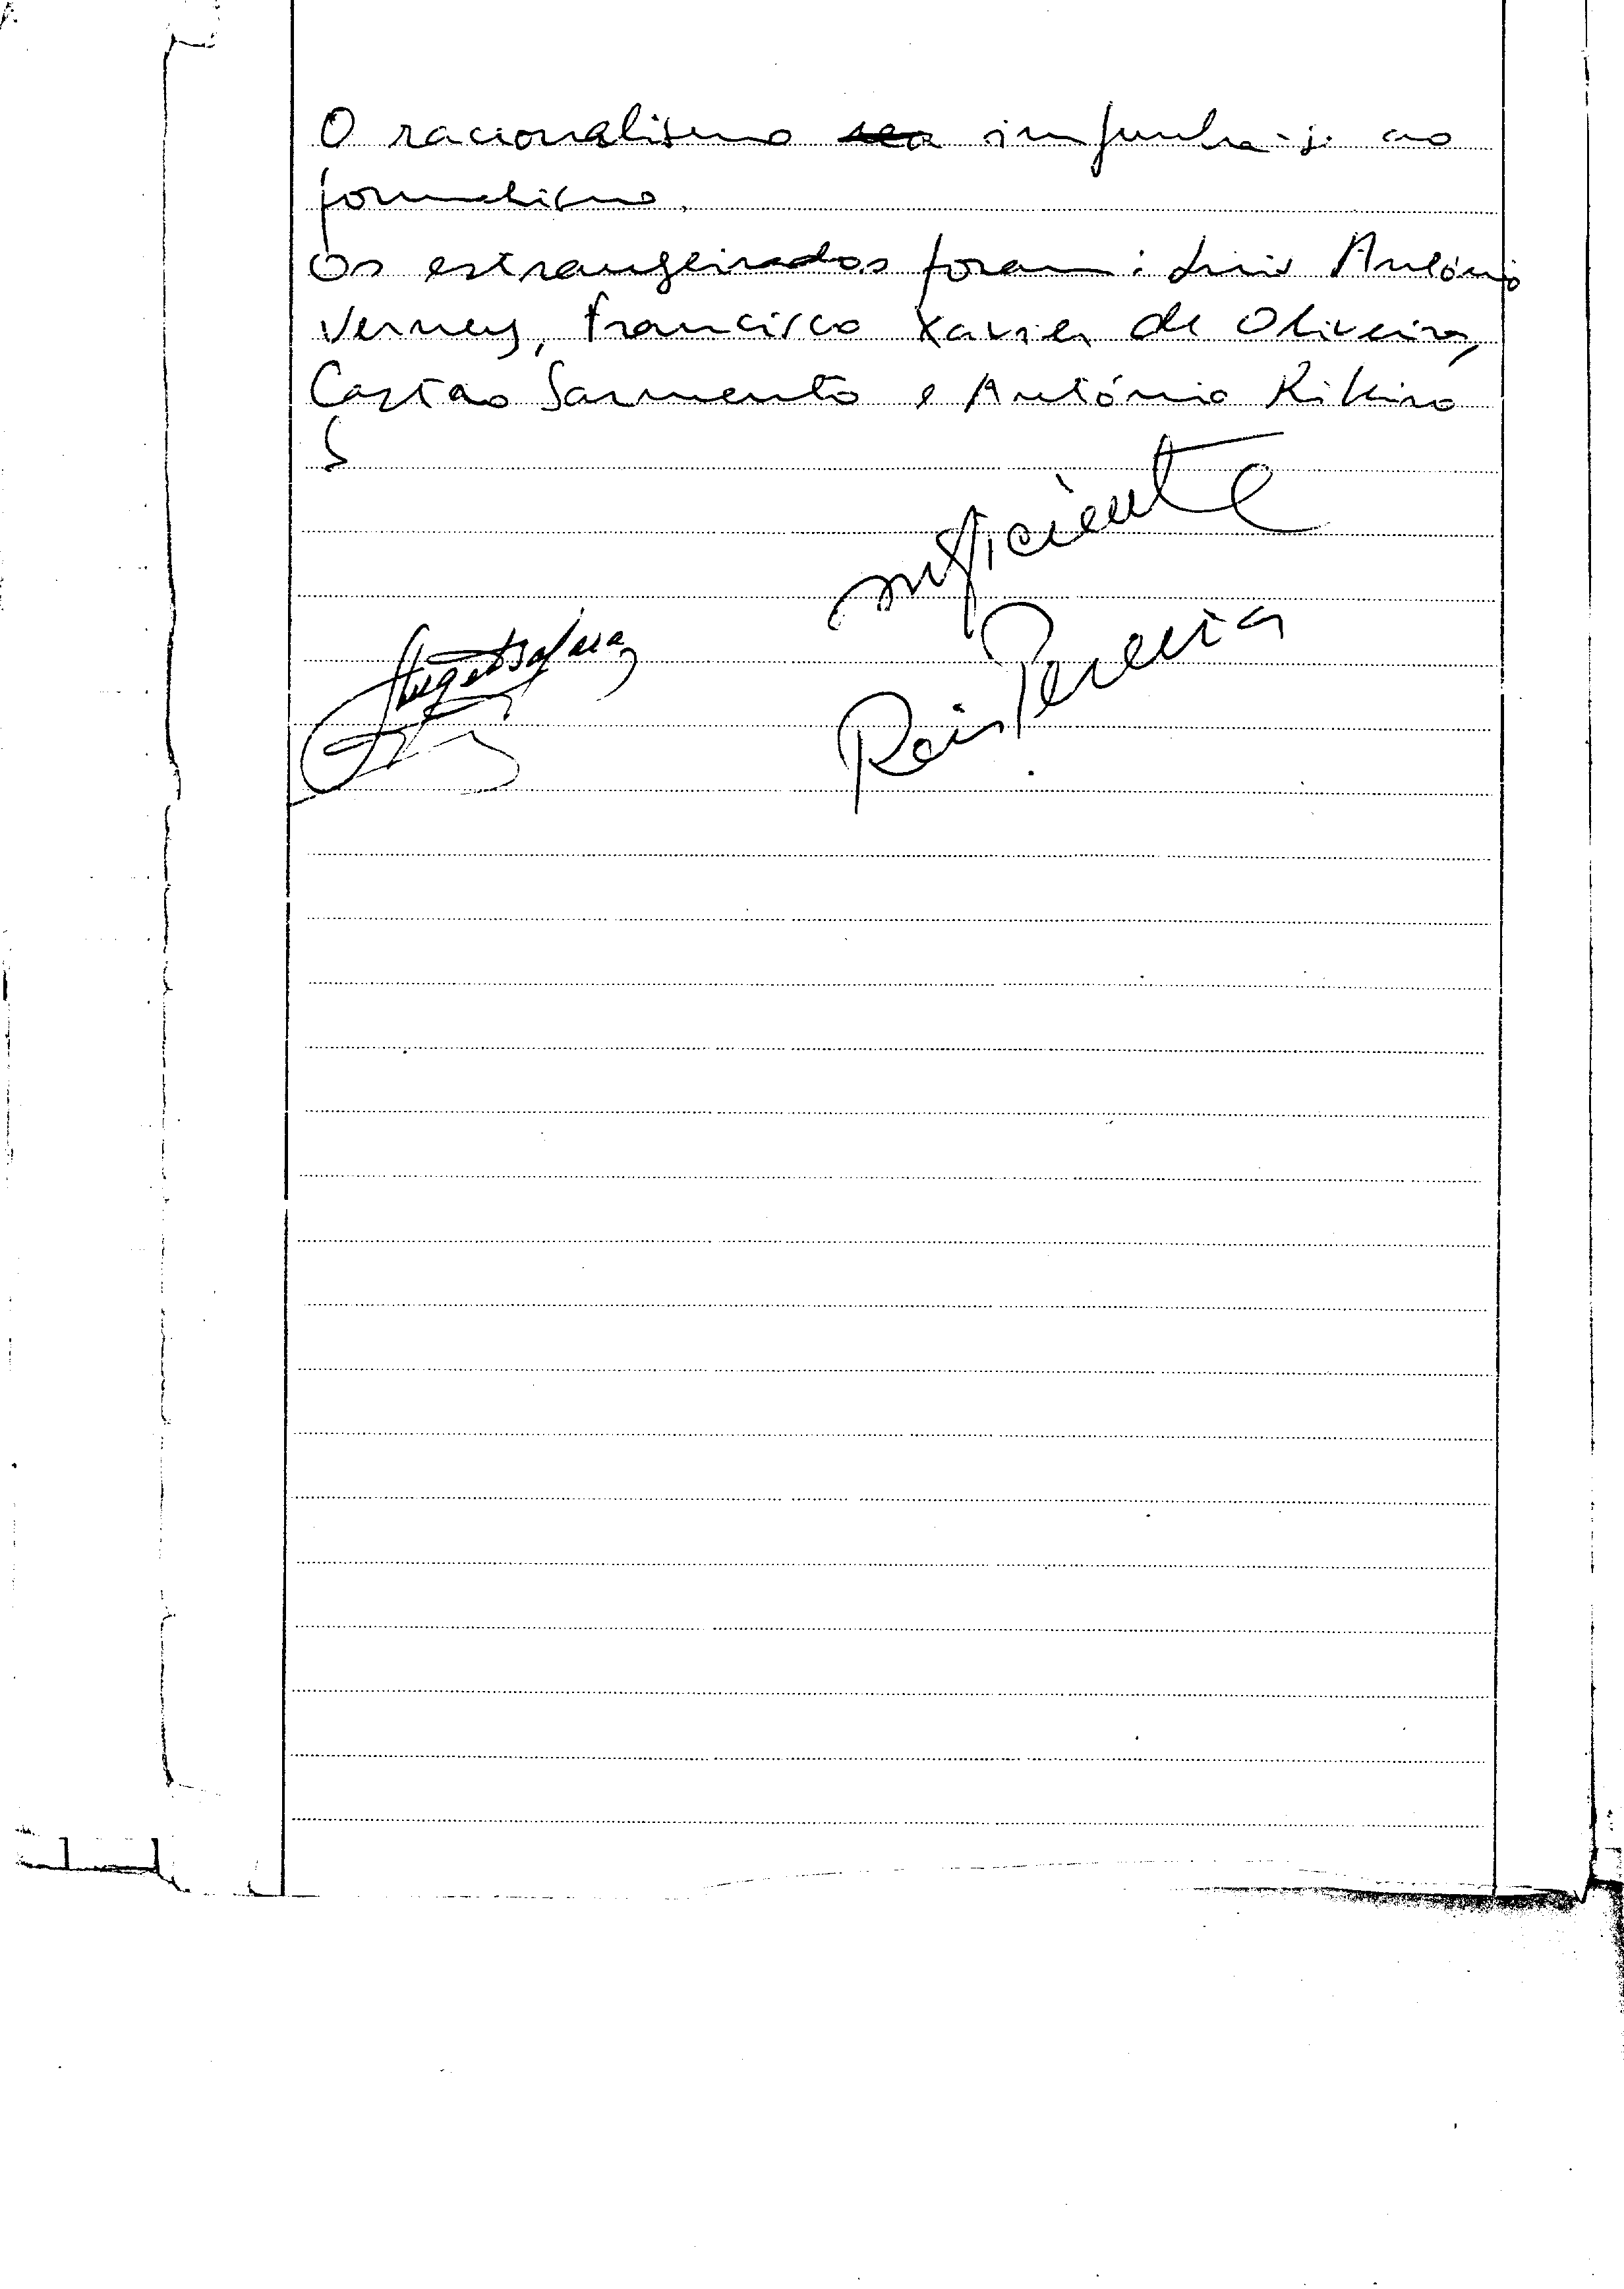 O racionalismo impunha-se ao
formalismo.
Os estrangeirados foram: Luis António
Verney, Francisco Xavier de Oliveira,
Castão Sarmento e António Ribeiro
S
suficiente
Reis Pereira